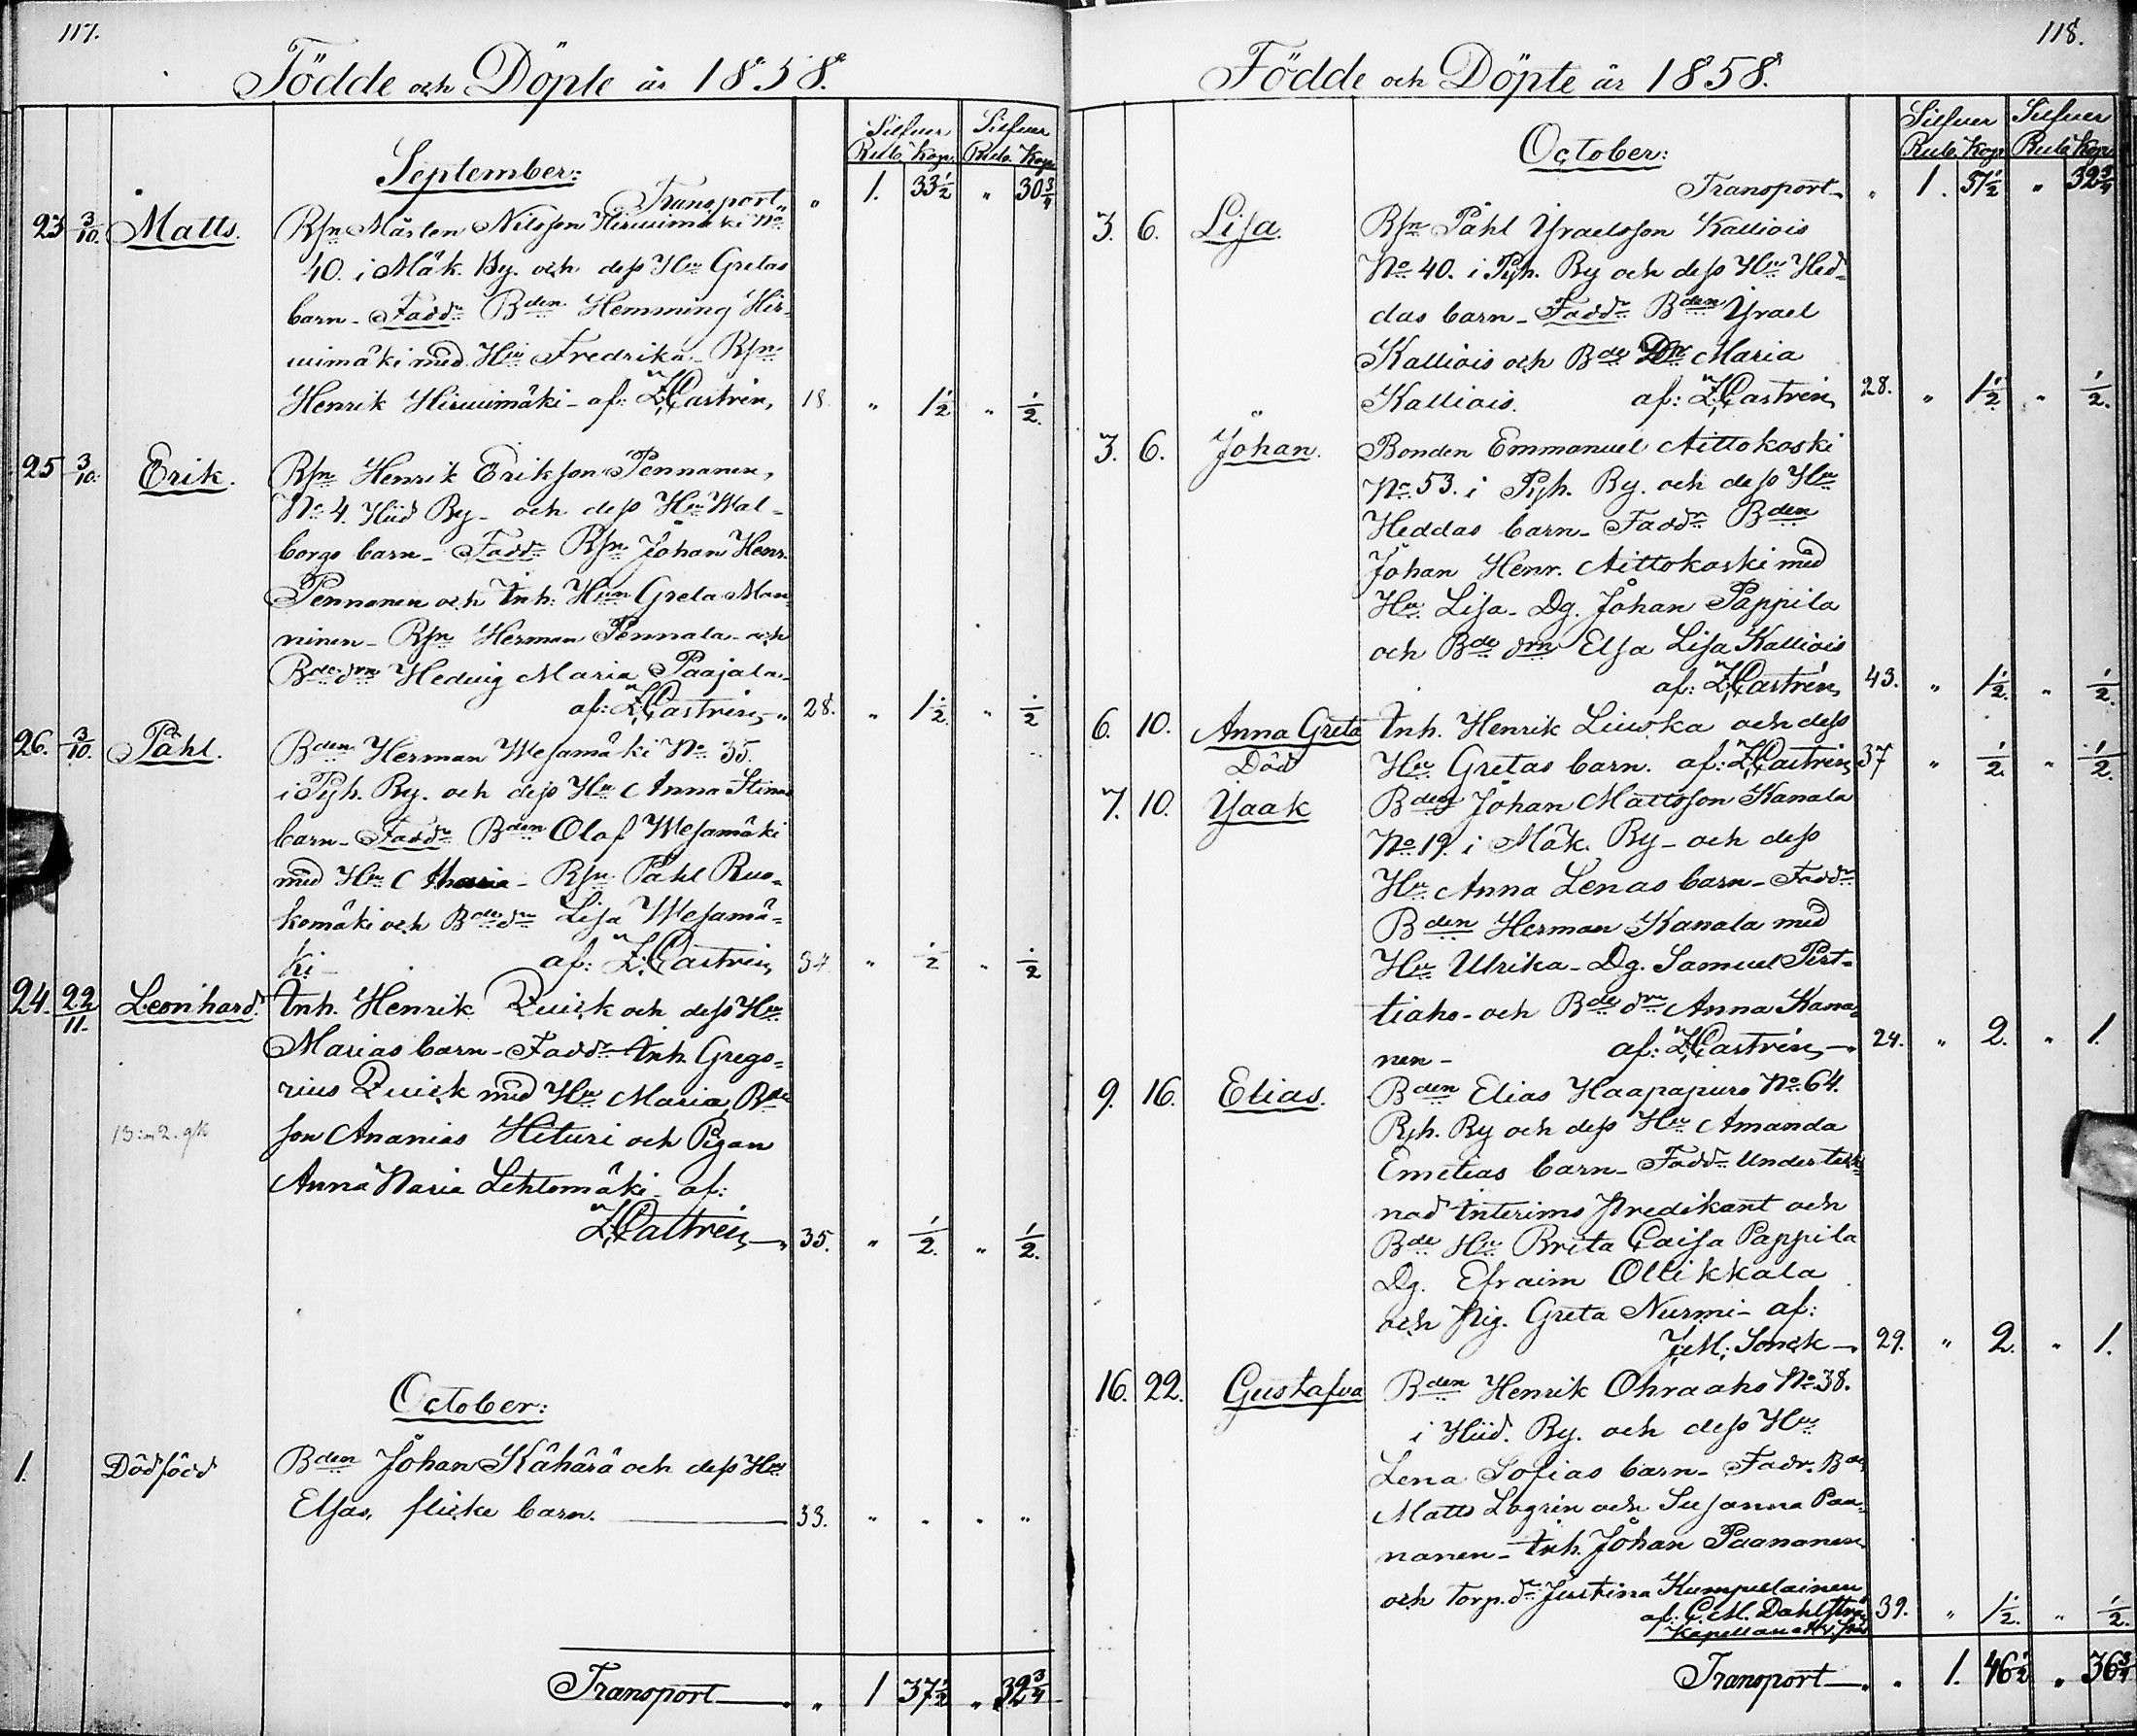 117.
Födde och Döpte år 1858.
Silfver Silfver
Rub. Kop. Rub. Kop.
September:
Transport „ „ 1. 33½ „ 30¾
23 3/10. Matts. Rsn Mårten Nilsson Hirvimäki No
40. i Mäk. By. och dess Hu Gretas
barn - Faddr Bden Hemming Hir-
vimäki med Hu Fredrika - Rsn
Henrik Hirvimäki - af: Z. Castrén, 18. „ 1½ „ ½.
25 3/10. Erik. Rsn Henrik Eriksson Pennanen,
No 4. Hiid By - och dess Hu Wal-
borgs barn - Faddr Rsn Johan Henr.
Pennanen och Inh. Hun Greta Man-
ninen - Rsn Herman Pennala och
Bde dm Hedvig Maria Paajala -
af: Z. Castrén, „ 28. „ 1½. „ ½
26. 3/10. Påhl. Bden Herman Wesamäki No 35.
i Pyh. By. och dess Hu Anna Stinas
barn - Faddr Bden Olof Wesamäki
med Hu Maria - Rsn Påhl Rus-
komäki och Bde dr Lisa Wesamä-
ki - af: Z. Castrén, 34. „ ½ „ ½
24. 22/11. Leonhard. Inh. Henrik Quick och dess Hu
Marias barn - Faddr Inh. Grego-
rius Quick med Hu Maria, Bde
son Ananias Hituri och Pigan
Anna Maria Lehtomäki - af:
Z. Castrén, „ 35. „ ½. „ ½.
October:
1. Dödfödd Bden Johan Kähärä och dess Hus
Elsas, flicke barn. 33. „ „ „ „
Transport „ „ 1 37½ „ 32¾
118.
Födde och Döpte år 1858.
Silfver Silfver
Rub. Kop. Rub. Kop.
October:
Transport „ 1. 37½ „ 32¾
3. 6. Lisa. Rsn Påhl Yraelsson Kalliois
No 40. i Pyh. By och dess Hu Hed-
das barn - Faddr Bden Yrael
Kalliois och Bde Dr Maria
Kalliois. af: Z. Castrén, 28. „ 1½. „ ½.
3. 6. Johan. Bonden Emmanuel Aittokoski
No 53. i Pyh. By. och dess Hu
Heddas barn - Faddr Bden
Johan Henr. Aittokoski med
Hu Lisa - Dg. Johan Pappila
och Bde dm Elsa Lisa Kalliois
af: Z. Castrén, 43. „ 1½. „ ½.
6. 10. Anna Greta Inh. Henrik Liuska och dess
Död Hu Gretas barn. af: Z. Castrén, 37 „ ½. „ ½.
7. 10. Yaak Bden Johan Mattsson Kanala
No 19. i Mäk. By - och dess
Hu Anna Lenas barn - Faddr
Bden Herman Kanala med
Hu Ulrika - Dg. Samuel Pirt-
tiaho - och Bde dm Anna Kana-
nen - af: Z. Castrén, „ 24. „ 2. „ 1.
9. 16. Elias. Bden Elias Haapapuro No 64.
Pyh. By och dess Hu Amanda
Emelias barn - Faddr Underteck-
nad Interims Predikant och
Bde Hu Brita Caisa Pappila
Dg. Efraim Ollikkala
och Pig. Greta Nurmi - af:
J. M. Sonck 29. „ 2. „ 1.
16. 22. Gustafva Bden Henrik Ohraaho No 38.
i Hiid. By. och dess Hu
Lena Sofias barn - Fadr. Bde
Matts Lagrén och Susanna Paa-
nanen - Inh. Johan Paananen
och Torp. dr Justina Kumpulainen
af: C. M. Dahlström 39. „ 1½. „ ½.
Kapellan
Transport „ „ 1. 46½ „ 36¾